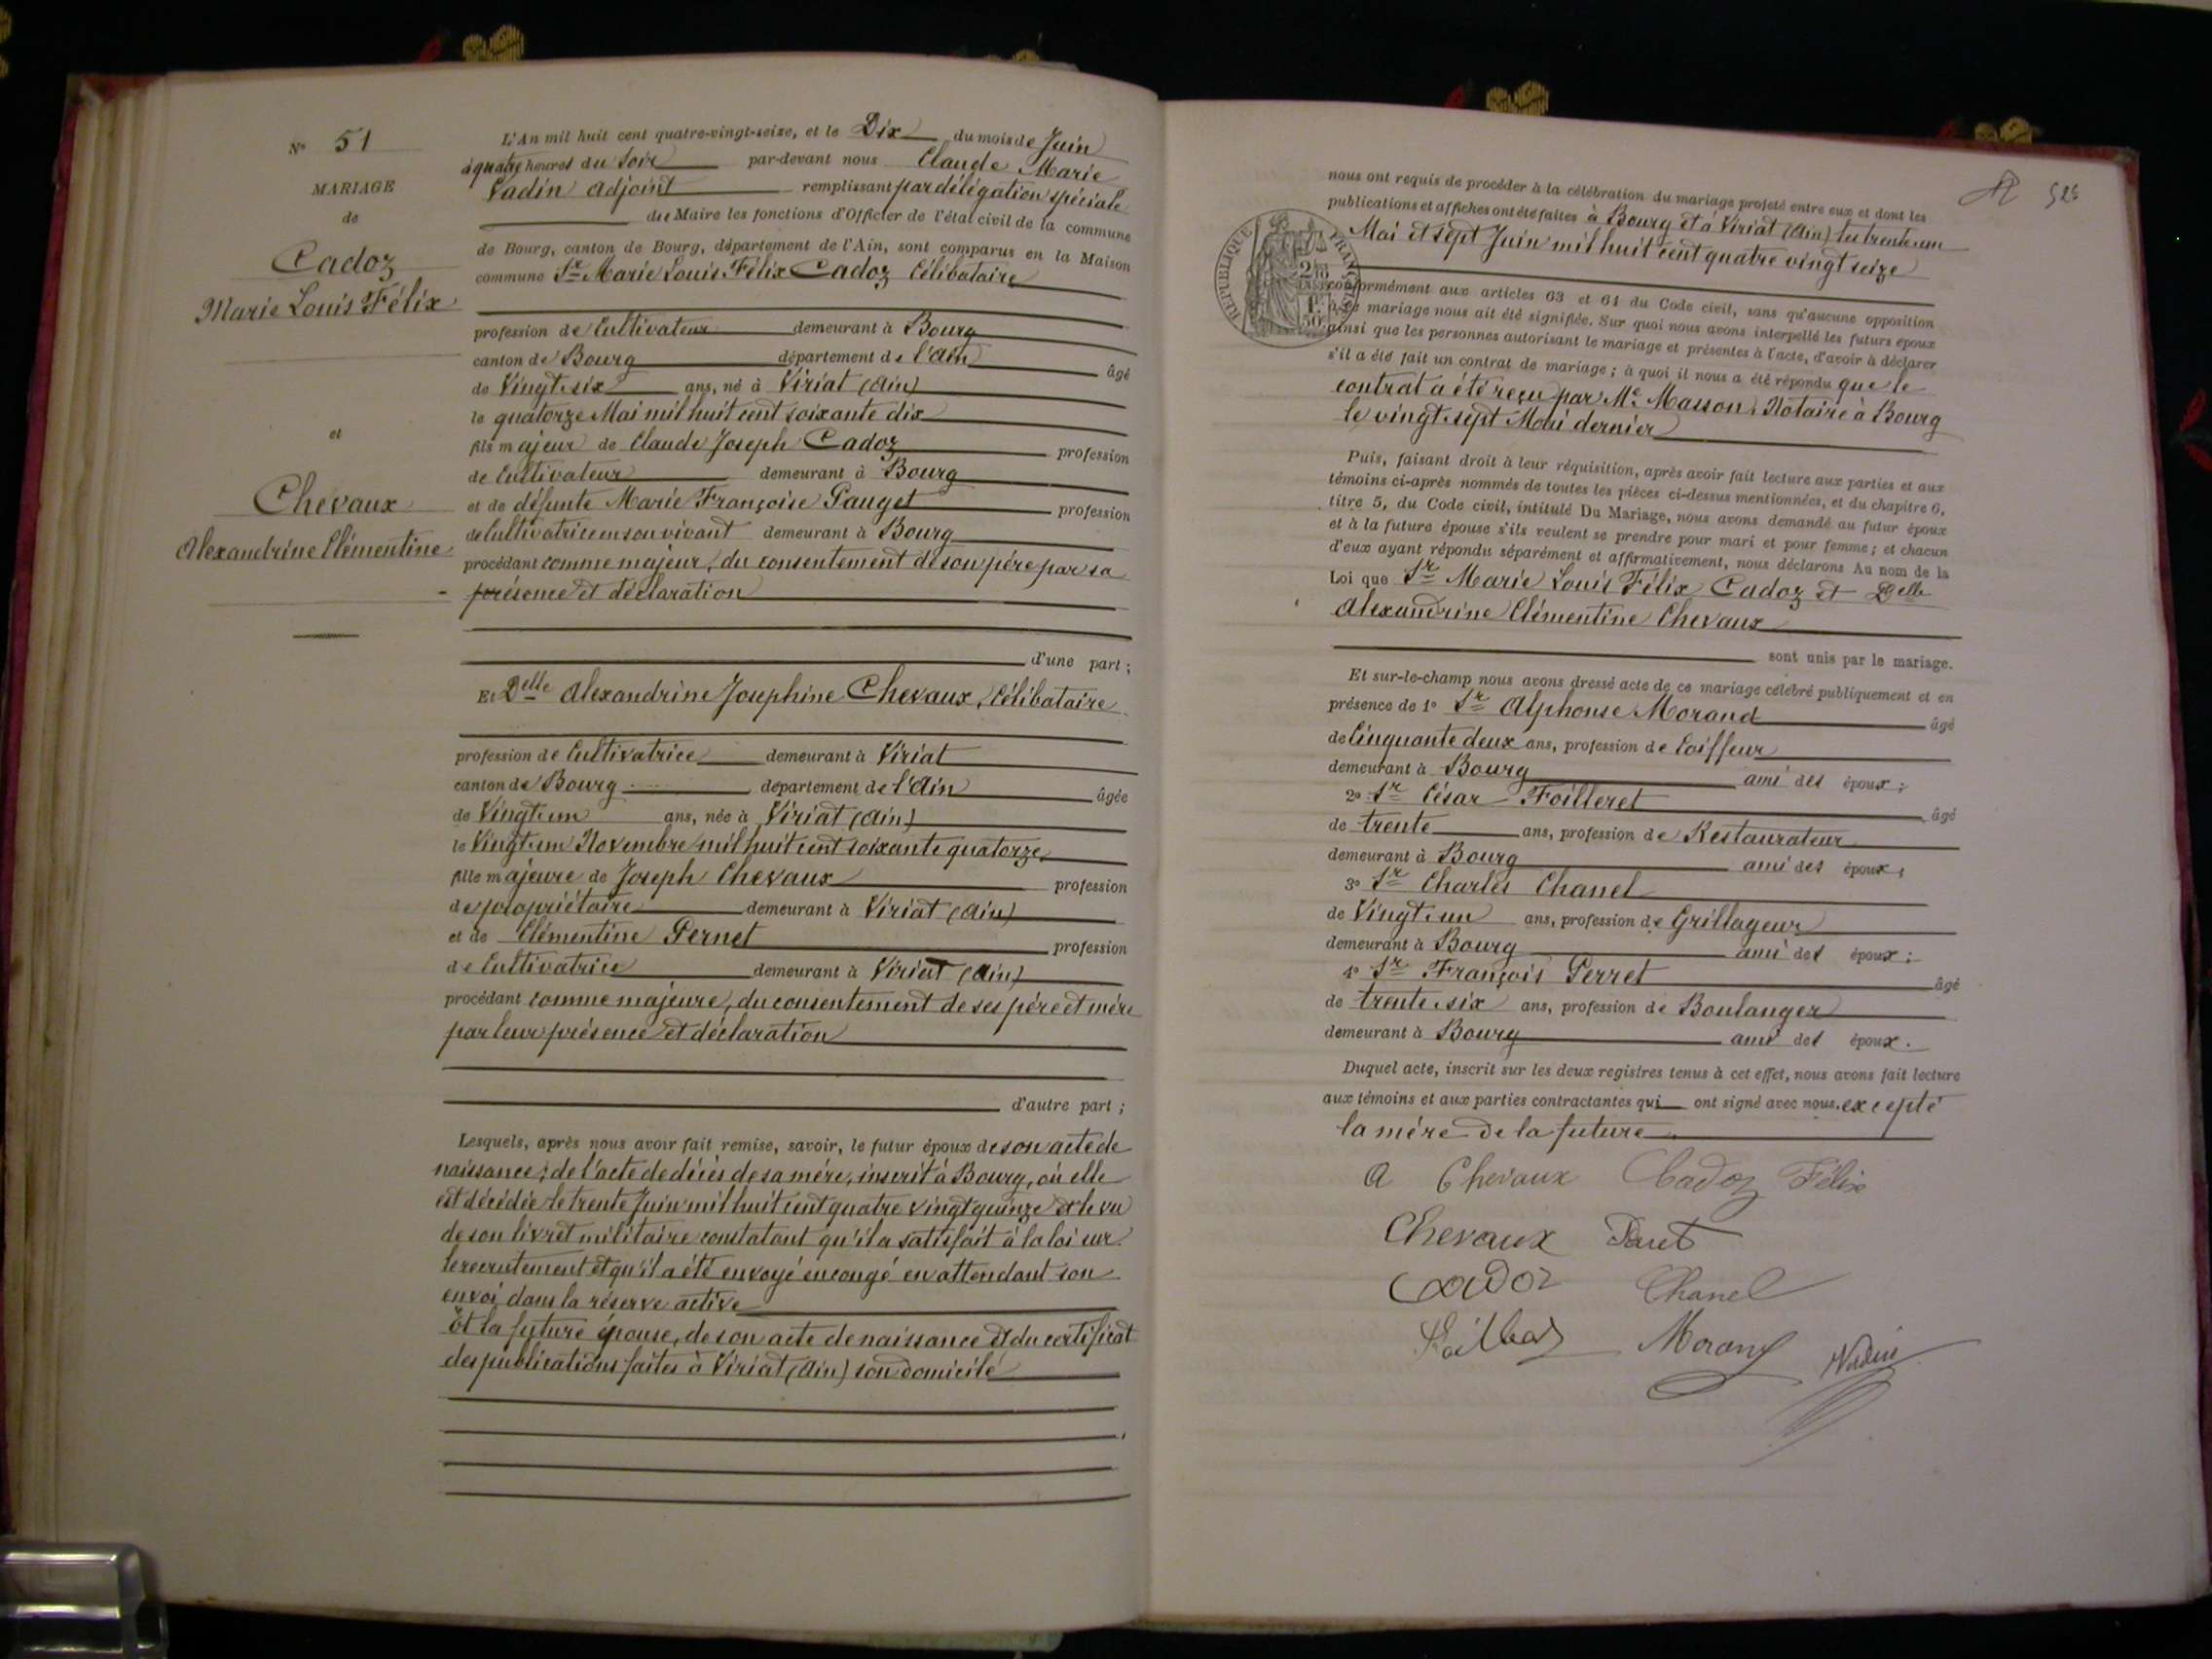 N° 51
MARIAGE
de
Cadoz
Marie Louis Félix
et
Chevaux
Alexandrine Clémentine
L'An mil huit cent quatre-vingt-seize, et le Dix du mois de Juin
à quatre heures du soir par-devant nous Claude Marie
Vadin adjoint remplissant par délégation spéciale
du Maire les fonctions d'Officier de l'état civil de la commune
de Bourg, canton de Bourg, département de l'Ain, sont comparus en la Maison
commune Sr Marie Louis Félix Cadoz Célibataire
profession de Cultivateur demeurant à Bourg
canton de Bourg département de l'Ain âgé
de Vingt-six ans, né à Viriat (Ain)
le quatorze Mai mil huit cent soixante dix
fils majeur de Claude Joseph Cadoz profession
de Cultivateur demeurant à Bourg
et de défunte Marie Françoise Pauget profession
de Cultivatrice en son vivant demeurant à Bourg
procédant comme majeur, du consentement de son père par sa
présence et déclaration
d'une part ;
Et Delle Alexandrine Joséphine Chevaux, Célibataire
profession de Cultivatrice demeurant à Viriat
canton de Bourg département de l'Ain âgée
de Vingt-un ans, née à Viriat (Ain)
le Vingt-un Novembre mil huit cent soixante quatorze
fille majeure de Joseph Chevaux profession
de propriétaire demeurant à Viriat (Ain)
et de Clémentine Pernet profession
de Cultivatrice demeurant à Viriat (Ain)
procédant comme majeure, du consentement de ses père et mère
par leur présence et déclaration
d'autre part ;
Lesquels, après nous avoir fait remise, savoir, le futur époux de son acte de
naissance ; de l'acte de décès de sa mère, inscrit à Bourg, où elle
est décédée le trente Juin mil huit cent quatre vingt quinze et le vu
de son livret militaire constatant qu'il a satisfait à la loi sur
le recrutement et qu'il a été envoyé en congé en attendant son
envoi dans la réserve active
Et la future épouse, de son acte de naissance et du certificat
des publications faites à Viriat (Ain) son domicile
nous ont requis de procéder à la célébration du mariage projeté entre eux et dont les
publications et affiches ont été faites à Bourg et à Viriat (Ain) les trente-un
Mai et sept Juin mil huit cent quatre vingt seize
RÉPUBLIQUE FRANÇAISE
conformément aux articles 63 et 64 du Code civil, sans qu'aucune opposition
à ce mariage nous ait été signifiée. Sur quoi nous avons interpellé les futurs époux
ainsi que les personnes autorisant le mariage et présentes à l'acte, d'avoir à déclarer
s'il a été fait un contrat de mariage ; à quoi il nous a été répondu que le
contrat a été reçu par Me Masson, Notaire à Bourg
le vingt-sept Mai dernier
Puis, faisant droit à leur réquisition, après avoir fait lecture aux parties et aux
témoins ci-après nommés de toutes les pièces ci-dessus mentionnées, et du chapitre 6,
titre 5, du Code civil, intitulé Du Mariage, nous avons demandé au futur époux
et à la future épouse s'ils veulent se prendre pour mari et pour femme ; et chacun
d'eux ayant répondu séparément et affirmativement, nous déclarons Au nom de la
Loi que Sr Marie Louis Félix Cadoz et Delle
Alexandrine Clémentine Chevaux
sont unis par le mariage.
Et sur-le-champ nous avons dressé acte de ce mariage célébré publiquement et en
présence de 1° Sr Alphonse Morand âgé
de Cinquante deux ans, profession de Coiffeur
demeurant à Bourg ami des époux ;
2° Sr César Foilleret âgé
de trente ans, profession de Restaurateur
demeurant à Bourg ami des époux ;
3° Sr Charles Chanel
de Vingt-un ans, profession de Grillageur
demeurant à Bourg ami des époux ;
4° Sr François Perret âgé
de trente-six ans, profession de Boulanger
demeurant à Bourg ami des époux.
Duquel acte, inscrit sur les deux registres tenus à cet effet, nous avons fait lecture
aux témoins et aux parties contractantes qui ont signé avec nous, excepté
la mère de la future
A Chevaux Cadoz Félix
Chevaux
Cadoz Chanel
Morand Vadin